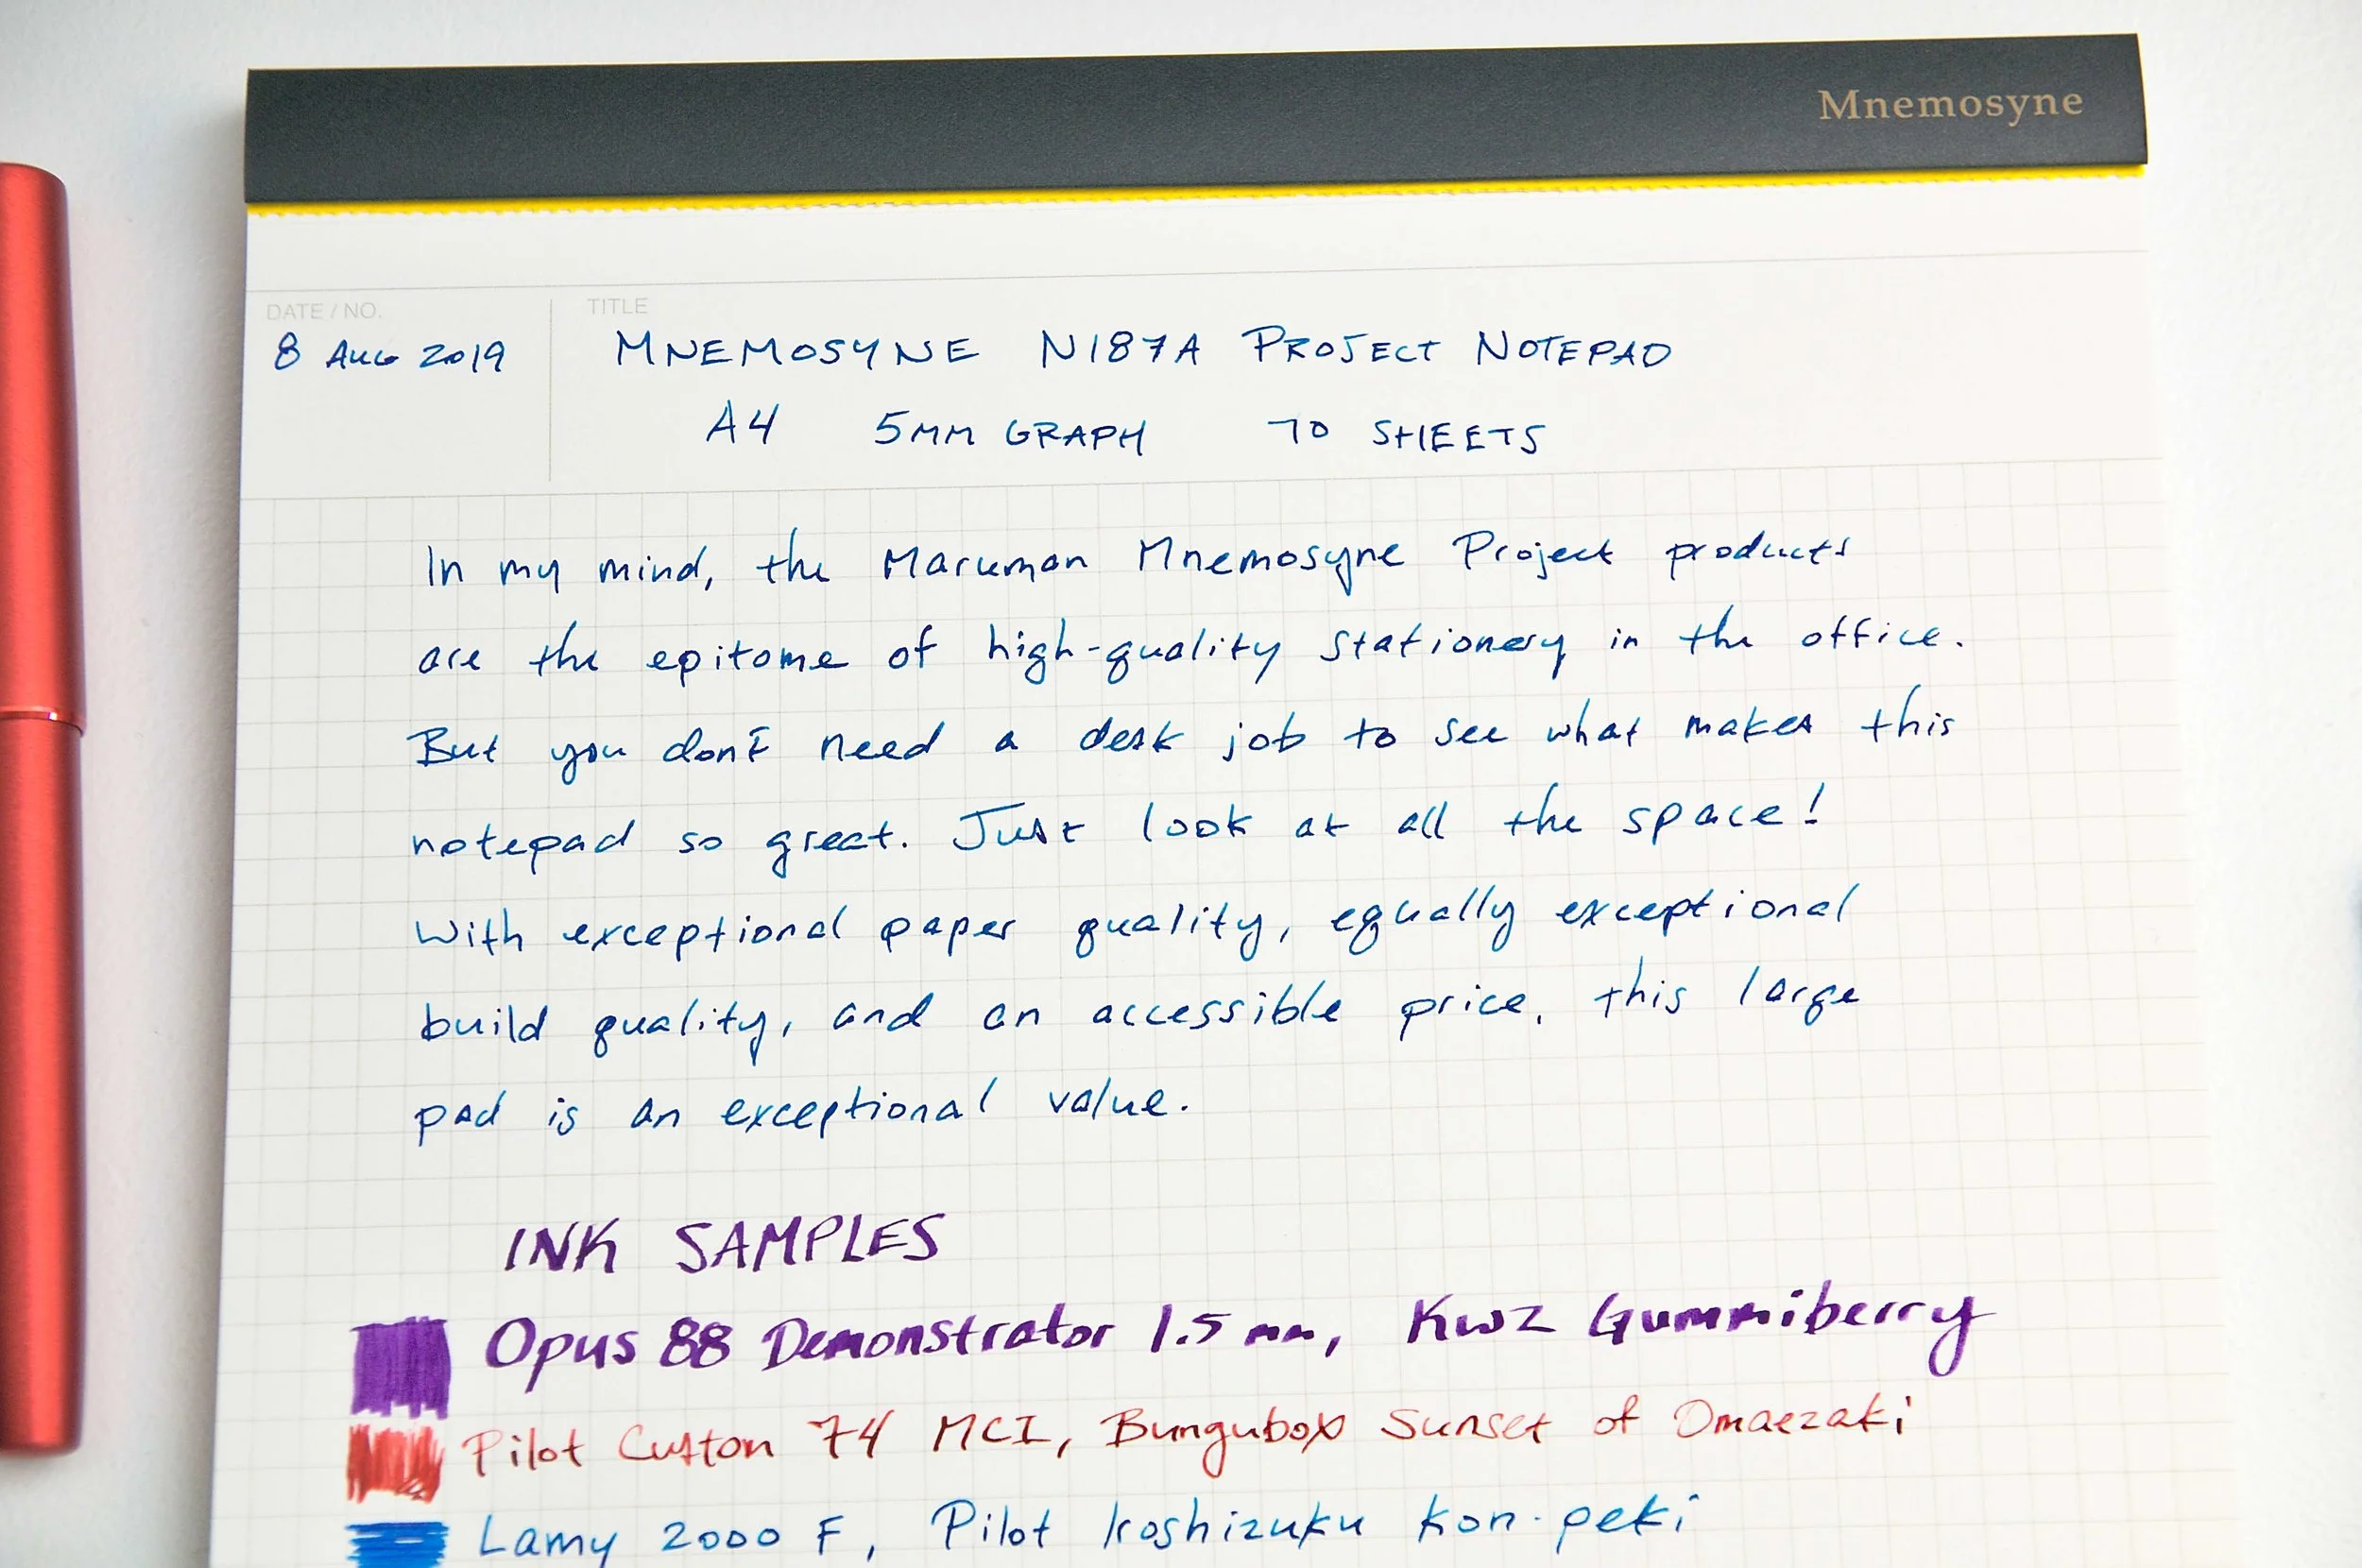 Mnemosyne
DATE / NO.
TITLE
8 AUG 2019
MNEMOSYNE N187A PROJECT NOTEPAD
A4 5MM GRAPH 70 SHEETS
In my mind, the Maruman Mnemosyne Project products
are the epitome of high-quality stationery in the office.
But you don't need a desk job to see what makes this
notepad so great. Just look at all the space!
With exceptional paper quality, equally exceptional
build quality, and an accessible price, this large
pad is an exceptional value.
INK SAMPLES
Opus 88 Demonstrator 1.5 mm, KWZ Gummiberry
Pilot Custom 74 MCI, Bungubox Sunset of Omaezaki
Lamy 2000 F, Pilot Iroshizuku Kon-peki